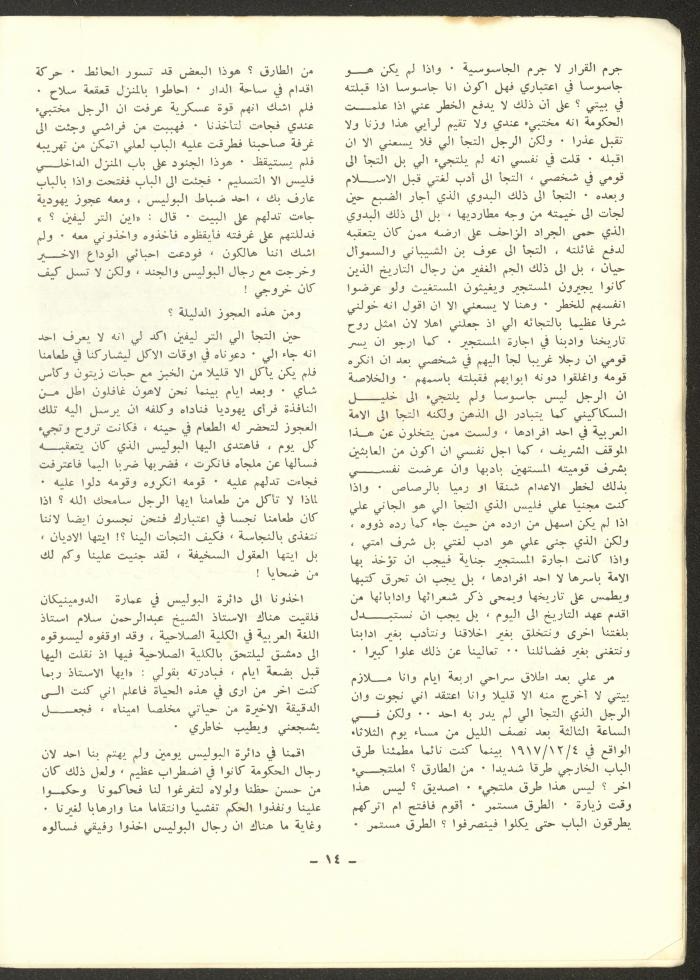 جرم الفرار لا جرم الجاسوسية ٠ واذا لم يكن هـــو
جاسوسا في اعتباري فهل اكون انا جاسوسا اذا قبلته
في بيتي ؟ على أن ذلك لا يدفع الخطر عني اذا علمــت
الحكومة انه مختبيء عندي ولا تقيم لرأيي هذا وزنا ولا
تقبل عذرا ٠ ولكن الرجل التجأ الي فلا يسعني الا ان
اقبله ٠ قلت في نفسي انه لم يلتجيء الي بل التجأ الى
قومي في شخصي ، التجأ الى أدب لغتي قبل الاســـلام
وبعده ٠ التجأ الى ذلك البدوي الذي أجار الضبع حين
لجأت الى خيمته من وجه مطارديها ، بل الى ذلك البدوي
الذي حمى الجراد الزاحف على ارضه ممن كان يتعقبه
لدفع غائلته ، التجأ الى عوف بن الشيباني والسموأل
حيان ، بل الى ذلك الجم الغفير من رجال التاريخ الذين
كانوا يجيرون المستجير ويغيثون المستغيث ولو عرضوا
انفسهم للخطر ٠ وهنا لا يسعني الا ان اقول انه خولني
شرفا عظيما بالتجائه الي اذ جعلني اهلا لان امثل روح
تاريخنا وادبنا في اجارة المستجير ٠ كما ارجو ان يسر
قومي ان رجلا غريبا لجا اليهم في شخصي بعد ان انكره
قومه واغلقوا دونه ابوابهم فقبلته باسمهم ٠ والخلاصة
ان الرجل ليس جاسوسا ولم يلتجيء الى خليـــل
السكاكيني كما يتبادر الى الذهن ولكنه التجأ الى الامة
العربية في احد افرادها ، ولست ممن يتخلون عن هـذا
الموقف الشريف ، كما اجل نفسي ان اكون من العابثين
بشرف قوميته المستهين بادبها وان عرضت نفســـي
بذلك لخطر الاعدام شنقا او رميا بالرصاص ٠ واذا
كنت مجنيا علي فليس الذي التجأ الي هو الجاني علي
اذا لم يكن اسهل من ارده من حيث جاء كما رده ذووه ،
ولكن الذي جنى علي هو ادب لغتي بل شرف امتي ،
واذا كانت اجارة المستجير جناية فيجب ان تؤخذ بها
الامة باسرها لا احد افرادها ، بل يجب ان تحرق كتبها
ويطمس على تاريخها ويمحى ذكر شعرائها وادابائها من
اقدم عهد التاريخ الى اليوم ، بل يجب ان نستبـــدل
بلغتنا اخرى ونتخلق بغير اخلاقنا ونتأدب بغير ادابنا
ونتغنى بغير فضائلنا ٠٠ تعالينا عن ذلك علوا كبيرا ٠
مر علي بعد اطلاق سراحي اربعة ايام وانا مــلازم
بيتي لا أخرج منه الا قليلا وانا اعتقد اني نجوت وان
الرجل الذي التجأ الي لم يدر به احد ٠٠ ولكن فـــي
الساعة الثالثة بعد نصف الليل من مساء يوم الثلاثاء
الواقع في ١٩١٧/١٢/٤ بينما كنت نائما مطمئنا طرق
الباب الخارجي طرقا شديدا ٠ من الطارق ؟ املتجـــيء
اخر ؟ ليس هذا طرق ملتجيء ٠ اصديق ؟ ليس هذا
وقت زيارة ٠ الطرق مستمر ٠ أقوم فافتح ام اتركهم
يطرقون الباب حتى يكلوا فينصرفوا ؟ الطرق مستمر ٠
من الطارق ؟ هوذا البعض قد تسور الحائط ٠ حركة
اقدام في ساحة الدار ٠ احاطوا بالمنزل قعقعة سلاح ٠
فلم اشك انهم قوة عسكرية عرفت ان الرجل مختبيء
عندي فجاءت لتأخذنا ٠ فهببت من فراشي وجئت الى
غرفة صاحبنا فطرقت عليه الباب لعلي اتمكن من تهريبه
فلم يستيقظ ٠ هوذا الجنود على باب المنزل الداخلـــي
فليس الا التسليم ٠ فجئت الى الباب ففتحت واذا بالباب
عارف بك ، احد ضباط البوليس ، ومعه عجوز يهودية
جاءت تدلهم على البيت ٠ قال : «اين التر ليفين ؟ »
فدللتهم على غرفته فأيقظوه فأخذوه واخذوني معه ٠ ولم
اشك اننا هالكون ، فودعت احبائي الوداع الاخـــير
وخرجت مع رجال البوليس والجند ، ولكن لا تسل كيف
كان خروجي !
ومن هذه العجوز الدليلة ؟
حين التجأ الي التر ليفين اكد لي انه لا يعرف احد
انه جاء الي ٠ دعوناه في اوقات الاكل ليشاركنا في طعامنا
فلم يكن يأكل الا قليلا من الخبز مع حبات زيتون وكأس
شاي ٠ وبعد ايام بينما نحن لاهون غافلون اطل مــن
النافذة فرأى يهوديا فناداه وكلفه ان يرسل اليه تلك
العجوز لتحضر له الطعام في حينه ، فكانت تروح وتجيء
كل يوم ، فاهتدى اليها البوليس الذي كان يتعقبـــه
فسألها عن ملجأه فانكرت ، فضربها ضربا اليما فاعترفت
فجاءت تدلهم عليه ٠ قومه انكروه وقومه دلوا عليه ٠
لماذا لا تأكل من طعامنا ايها الرجل سامحك الله ؟ اذا
كان طعامنا نجسا في اعتبارك فنحن نجسون ايضا لاننا
نتغذى بالنجاسة ، فكيف التجأت الينا ؟! ايتها الاديان ،
بل ايتها العقول السخيفة ، لقد جنيت علينا وكم لك
من ضحايا !
اخذونا الى دائرة البوليس في عمارة الدومينيكان
فلقيت هناك الاستاذ الشيخ عبدالرحمن سلام استاذ
اللغة العربية في الكلية الصلاحية ، وقد اوقفوه ليسوقوه
الى دمشق ليلتحق بالكلية الصلاحية فيها اذ نقلت اليها
قبل بضعة ايام ، فبادرته بقولي : «ايها الاستاذ ربما
كنت اخر من ارى في هذه الحياة فاعلم اني كنت الــى
الدقيقة الاخيرة من حياتي مخلصا امينا» ، فجعـــل
يشجعني ويطيب خاطري ٠
اقمنا في دائرة البوليس يومين ولم يهتم بنا احد لان
رجال الحكومة كانوا في اضطراب عظيم ، ولعل ذلك كان
من حسن حظنا ولولاه لتفرغوا لنا فحاكمونا وحكمــوا
علينا ونفذوا الحكم تفشيا وانتقاما منا وارهابا لغيرنا ٠
وغاية ما هناك ان رجال البوليس اخذوا رفيقي فسالوه
– ١٤ –